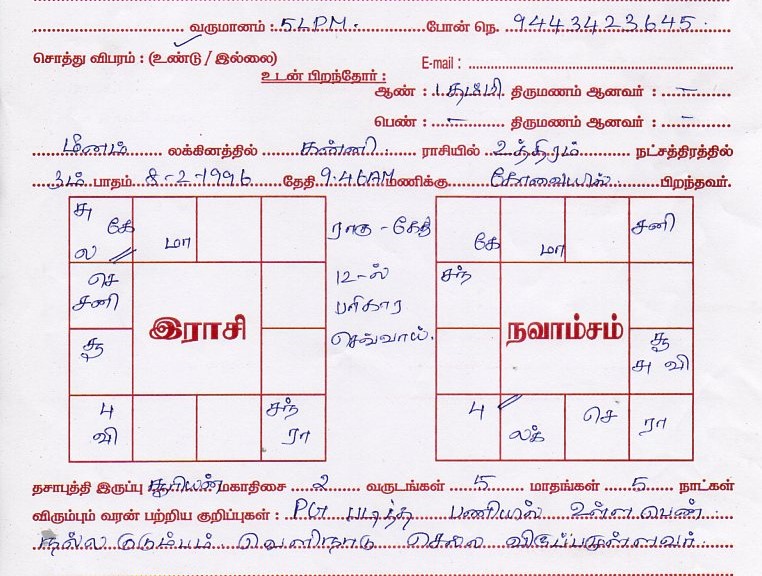 வருமானம் : 5LPM. போன் நெ. 9443423645.
சொத்து விபரம் : (உண்டு / இல்லை) E-mail :
உடன் பிறந்தோர் :
ஆண் : 1 தம்பி திருமணம் ஆனவர் : –
பெண் : – திருமணம் ஆனவர் : –
மீனம் லக்கினத்தில் கன்னி ராசியில் உத்திரம் நட்சத்திரத்தில்
3ம் பாதம் 8-2-1996 தேதி 9.46AM மணிக்கு கோவையில் பிறந்தவர்.
சு கே ல
மா
ராகு - கேது
கே
மா
சனி
செ சனி
12-ல்
பரிகார
செவ்வாய்.
சந்
இராசி
நவாம்சம்
சூ
சூ
சு வி
பு வி
சந் ரா
பு
லக்
செ
ரா
தசாபுத்தி இருப்பு சூரியன் மகாதிசை 2 வருடங்கள் 5 மாதங்கள் 5 நாட்கள்
விரும்பும் வரன் பற்றிய குறிப்புகள் : PG படித்த பணியில் உள்ள பெண்
நல்ல குடும்பம் வெளிநாடு செல்ல விருப்பமுள்ளவர்